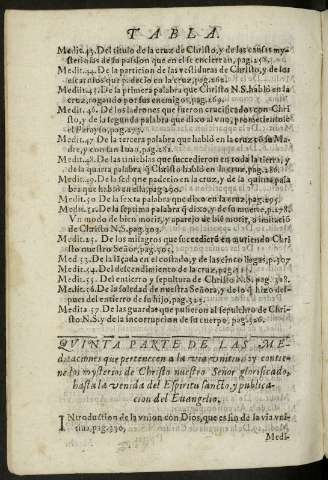 TABLA.
Medit.43. Del titulo de la cruz de Christo, y de las causas my-
steriosas de su passion que en el se encierran, pag.258.
Medit.44. De la particion de las vestiduras de Christo, y de los
que padecio en la cruz, pag.
Medit.45. De la primera palabra que Christo N.S. habló en la
cruz, rogando por sus enemigos, pag.269.
Medit.46. De los ladrones que fueron crucificados con Chri-
sto, y de la segunda palabra que dixo al vno, prometiendole
el Parayso, pag.275.
Medit.47 De la tercera palabra que habló en la cruz a su Ma-
dre, y con san Iuan, pag.281.
Medit.48. De las tinieblas que succedieron en toda la tierra, y
de la quarta palabra, q̃ Christo habló en la cruz, pag.286.
Medit.49. De la sed que padecio en la cruz, y de la quinta pala
bra que habló en ella, pag.290.
Medit.50. De la sexta palabra que dixo en la cruz, pag.295.
Medit.51. De la septima palabra q̃ dixo, y de su muerte, p.298.
Vn modo de bien morir, y aparejo de bie morir, a imitació
de Christo N.S. pag.303.
Medit.52. De los milagros que succedierõ en muriendo Chri
sto nuestro Señor, pag.305.
Med 53. De la lãçada en el costado, y de las cinco llagas, p.307
Medit.54. Del descendimiento de la cruz, pag.
Medit.55. Del entierro y sepultura de Christo N.S. pag.
Medit.56. De la soledad de nuestra Señora, y de lo q̃ hizo des-
pues del entierro de su hijo, pag.323.
Medita 57. De las guardas que pusieron al sepulchro de Chri-
sto N.S. y de la incorrupcion de su cuerpo, pag.326.
QVINTA PARTE DE LAS ME-
ditaciones que pertenecen a la via vnitiua, y contie-
ne los mysterios de Christo nuestro Señor glorificado,
hasta la venida del Espiritu sancto, y publica-
cion del Euangelio.
INtroduction de la vnion con Dios, que es fin de la via vni-
tiua, pag.330.
Medi-